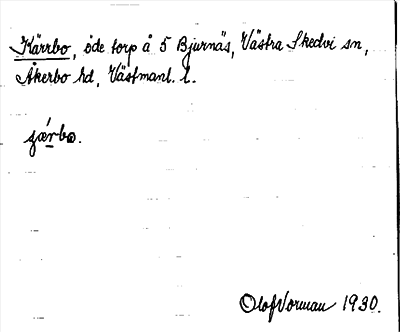 Kärrbo, öde torp å 5 Bjurnäs, Västra Skedvi sn,
Åkerbo hd, Västmanl. l.
Olof Vorman 1930.